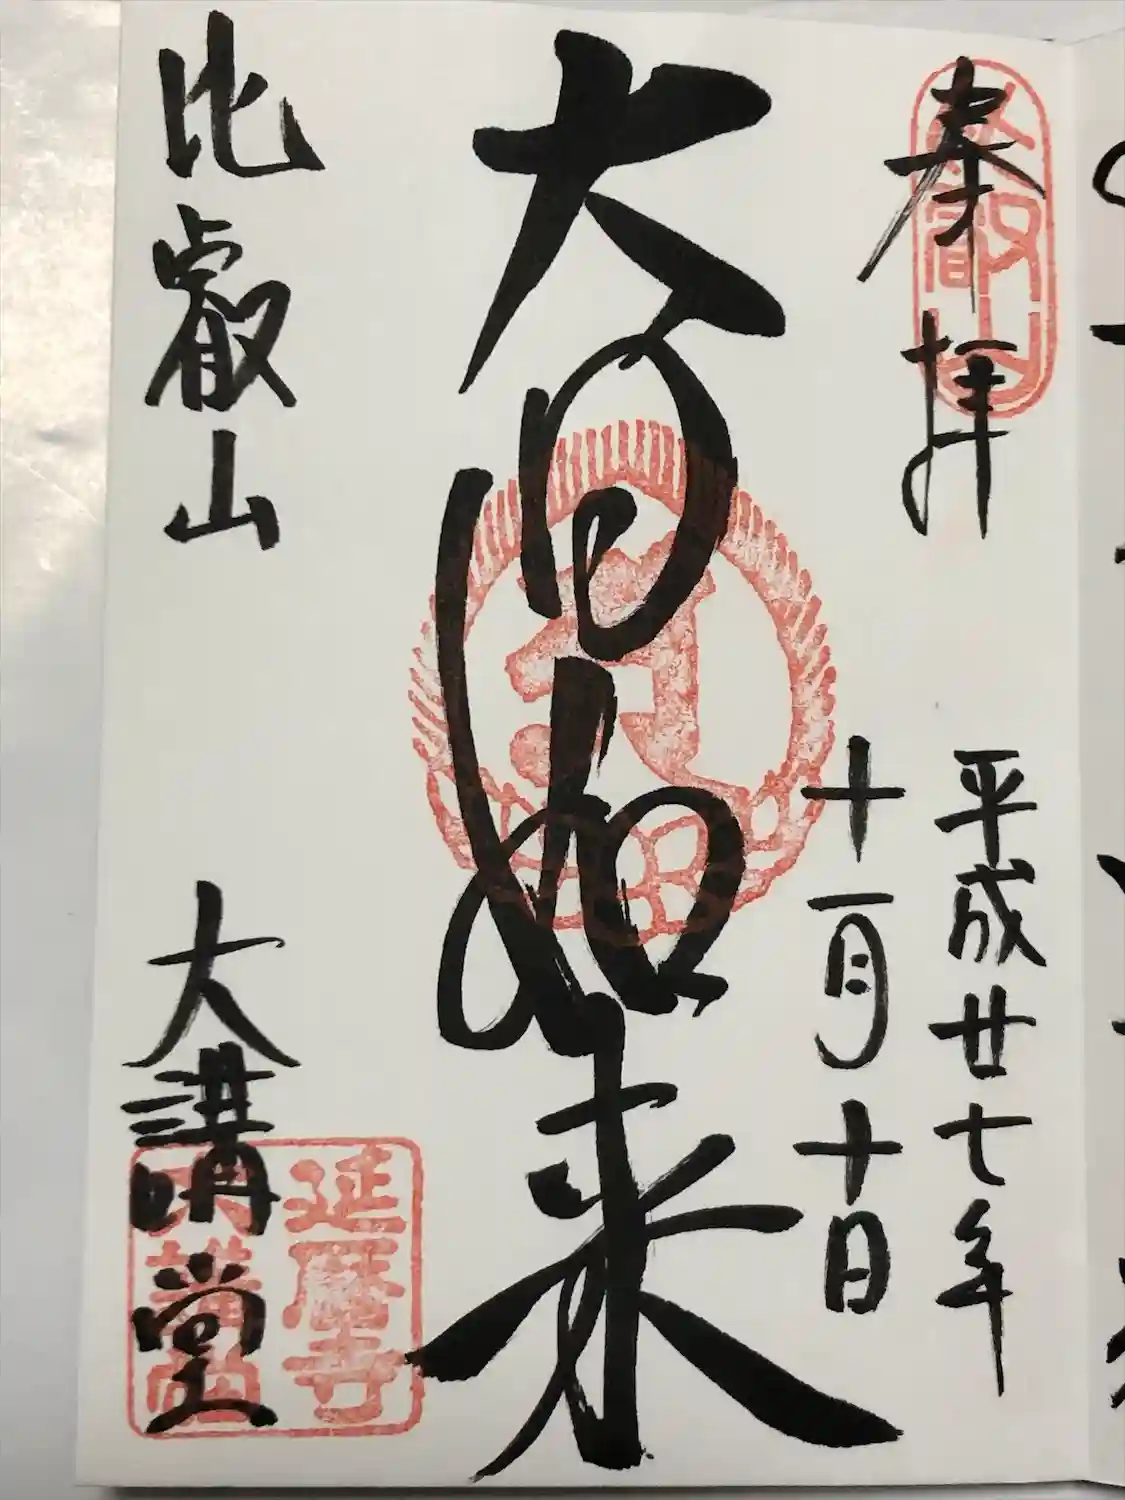 奉拝
平成廿七年
十一月十日
大日如来
比叡山
大講堂
延暦寺
大講堂